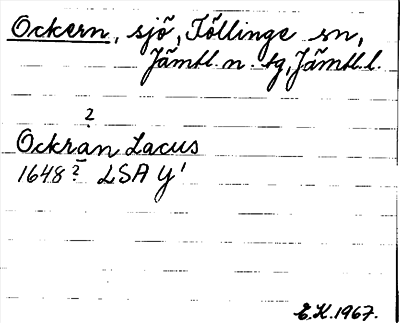 Ockern, sjö, Föllinge sn,
Jämtl. n. tg, Jämtl. l.
?
Ockran Lacus
1648? LSA Y'
E.K. 1967.